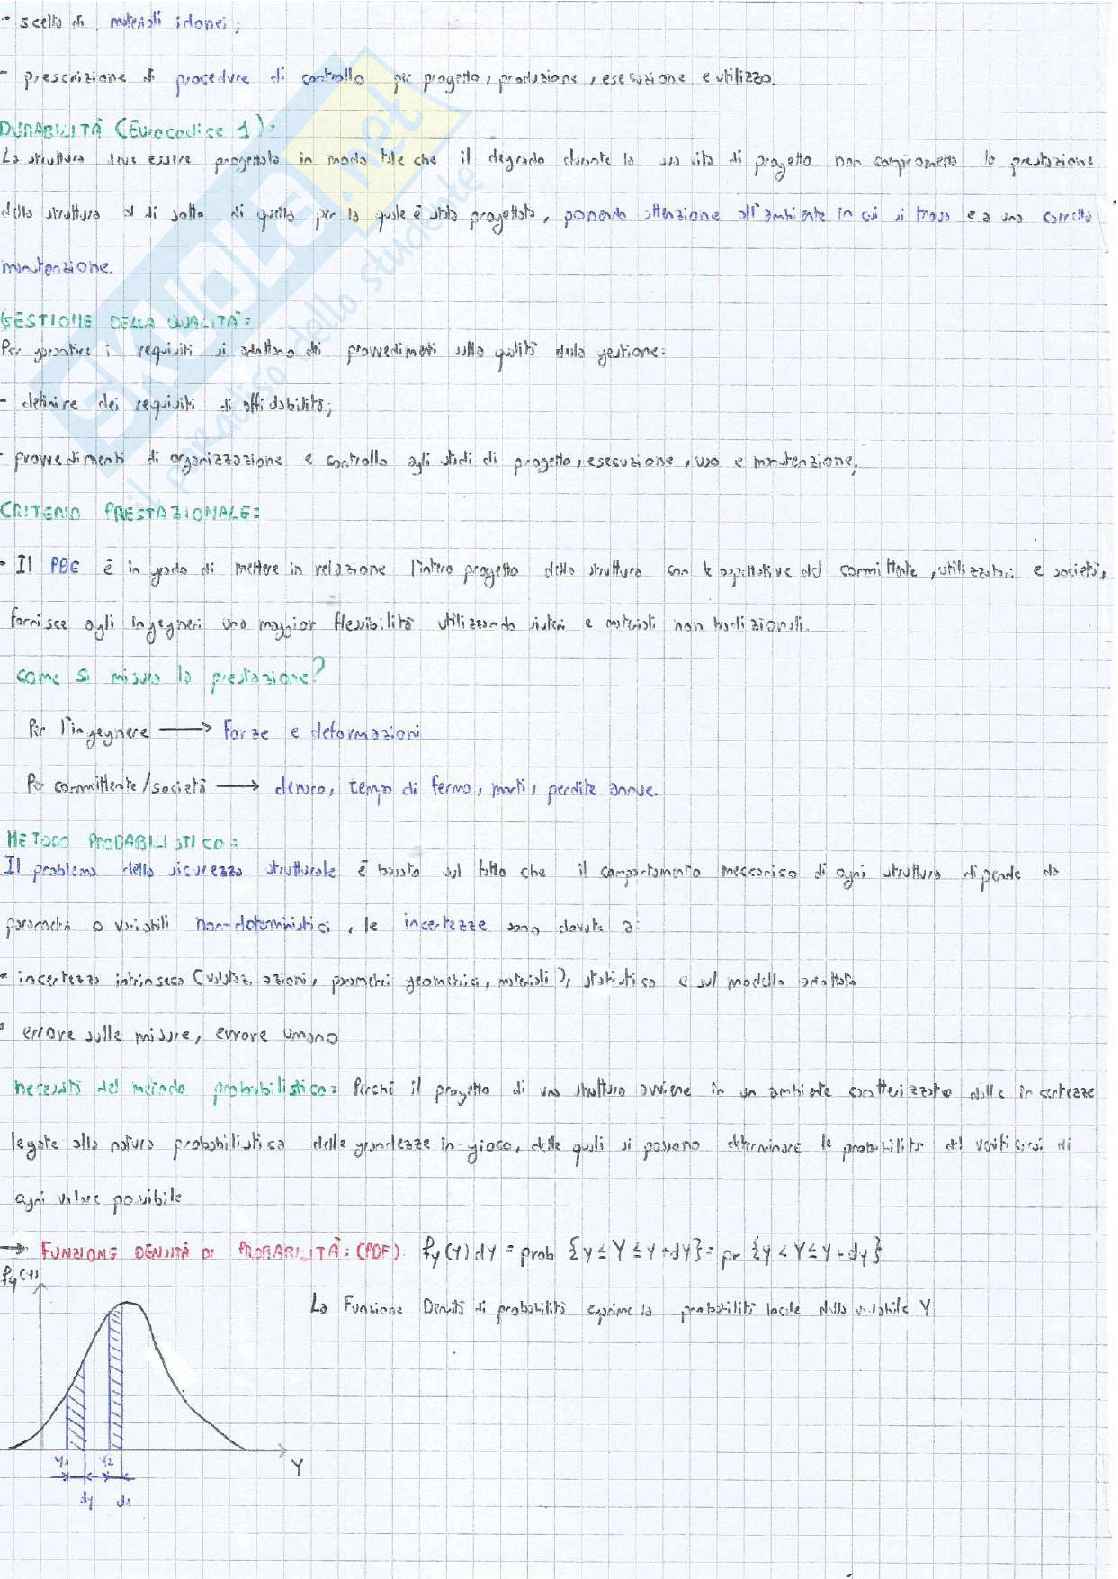 - scelta di materiali idonei;
- prescrizione di procedure di controllo per progetto, produzione, esecuzione e utilizzo.
DURABILITÀ (Eurocodice 1):
La struttura deve essere progettata in modo tale che il degrado durante la sua vita di progetto non comprometta la prestazione
della struttura al di sotto di quella per la quale è stata progettata, ponendo attenzione all'ambiente in cui si trova e a una corretta
manutenzione.
GESTIONE DELLA QUALITÀ:
Per garantire i requisiti si adottano dei provvedimenti sulla qualità della gestione:
- definire dei requisiti di affidabilità;
- provvedimenti di organizzazione e controllo agli stadi di progetto, esecuzione, uso e manutenzione;
CRITERIO PRESTAZIONALE:
- Il PBE è in grado di mettere in relazione l'intero progetto della struttura con le aspettative del committente, utilizzatori e società,
fornisce agli ingegneri una maggior flessibilità utilizzando sistemi e materiali non tradizionali.
come si misura la prestazione?
Per l'ingegnere → Forze e deformazioni
Per committente/società → denaro, tempo di fermo, morti, perdite annue.
METODO PROBABILISTICO:
Il problema della sicurezza strutturale è basato sul fatto che il comportamento meccanico di ogni struttura dipende da
parametri o variabili non-deterministici, le incertezze sono dovute a:
• incertezza intrinseca (valutaz. azioni, parametri geometrici, materiali), statistica e sul modello adottato
• errore sulle misure, errore umano
necessità del metodo probabilistico: Perché il progetto di una struttura avviene in un ambiente caratterizzato dalle incertezze
legate alla natura probabilistica delle grandezze in gioco, delle quali si possono determinare le probabilità del verificarsi di
ogni valore possibile
→ FUNZIONE DENSITÀ DI PROBABILITÀ: (PDF) fy(y)dy = prob {y ≤ Y ≤ y+dy} = pr {y < Y ≤ y+dy}
fy(y)
La Funzione Densità di probabilità esprime la probabilità locale della variabile Y
y1 y2
Y
dy dy
SKUOLA.net
il paradiso dello studente